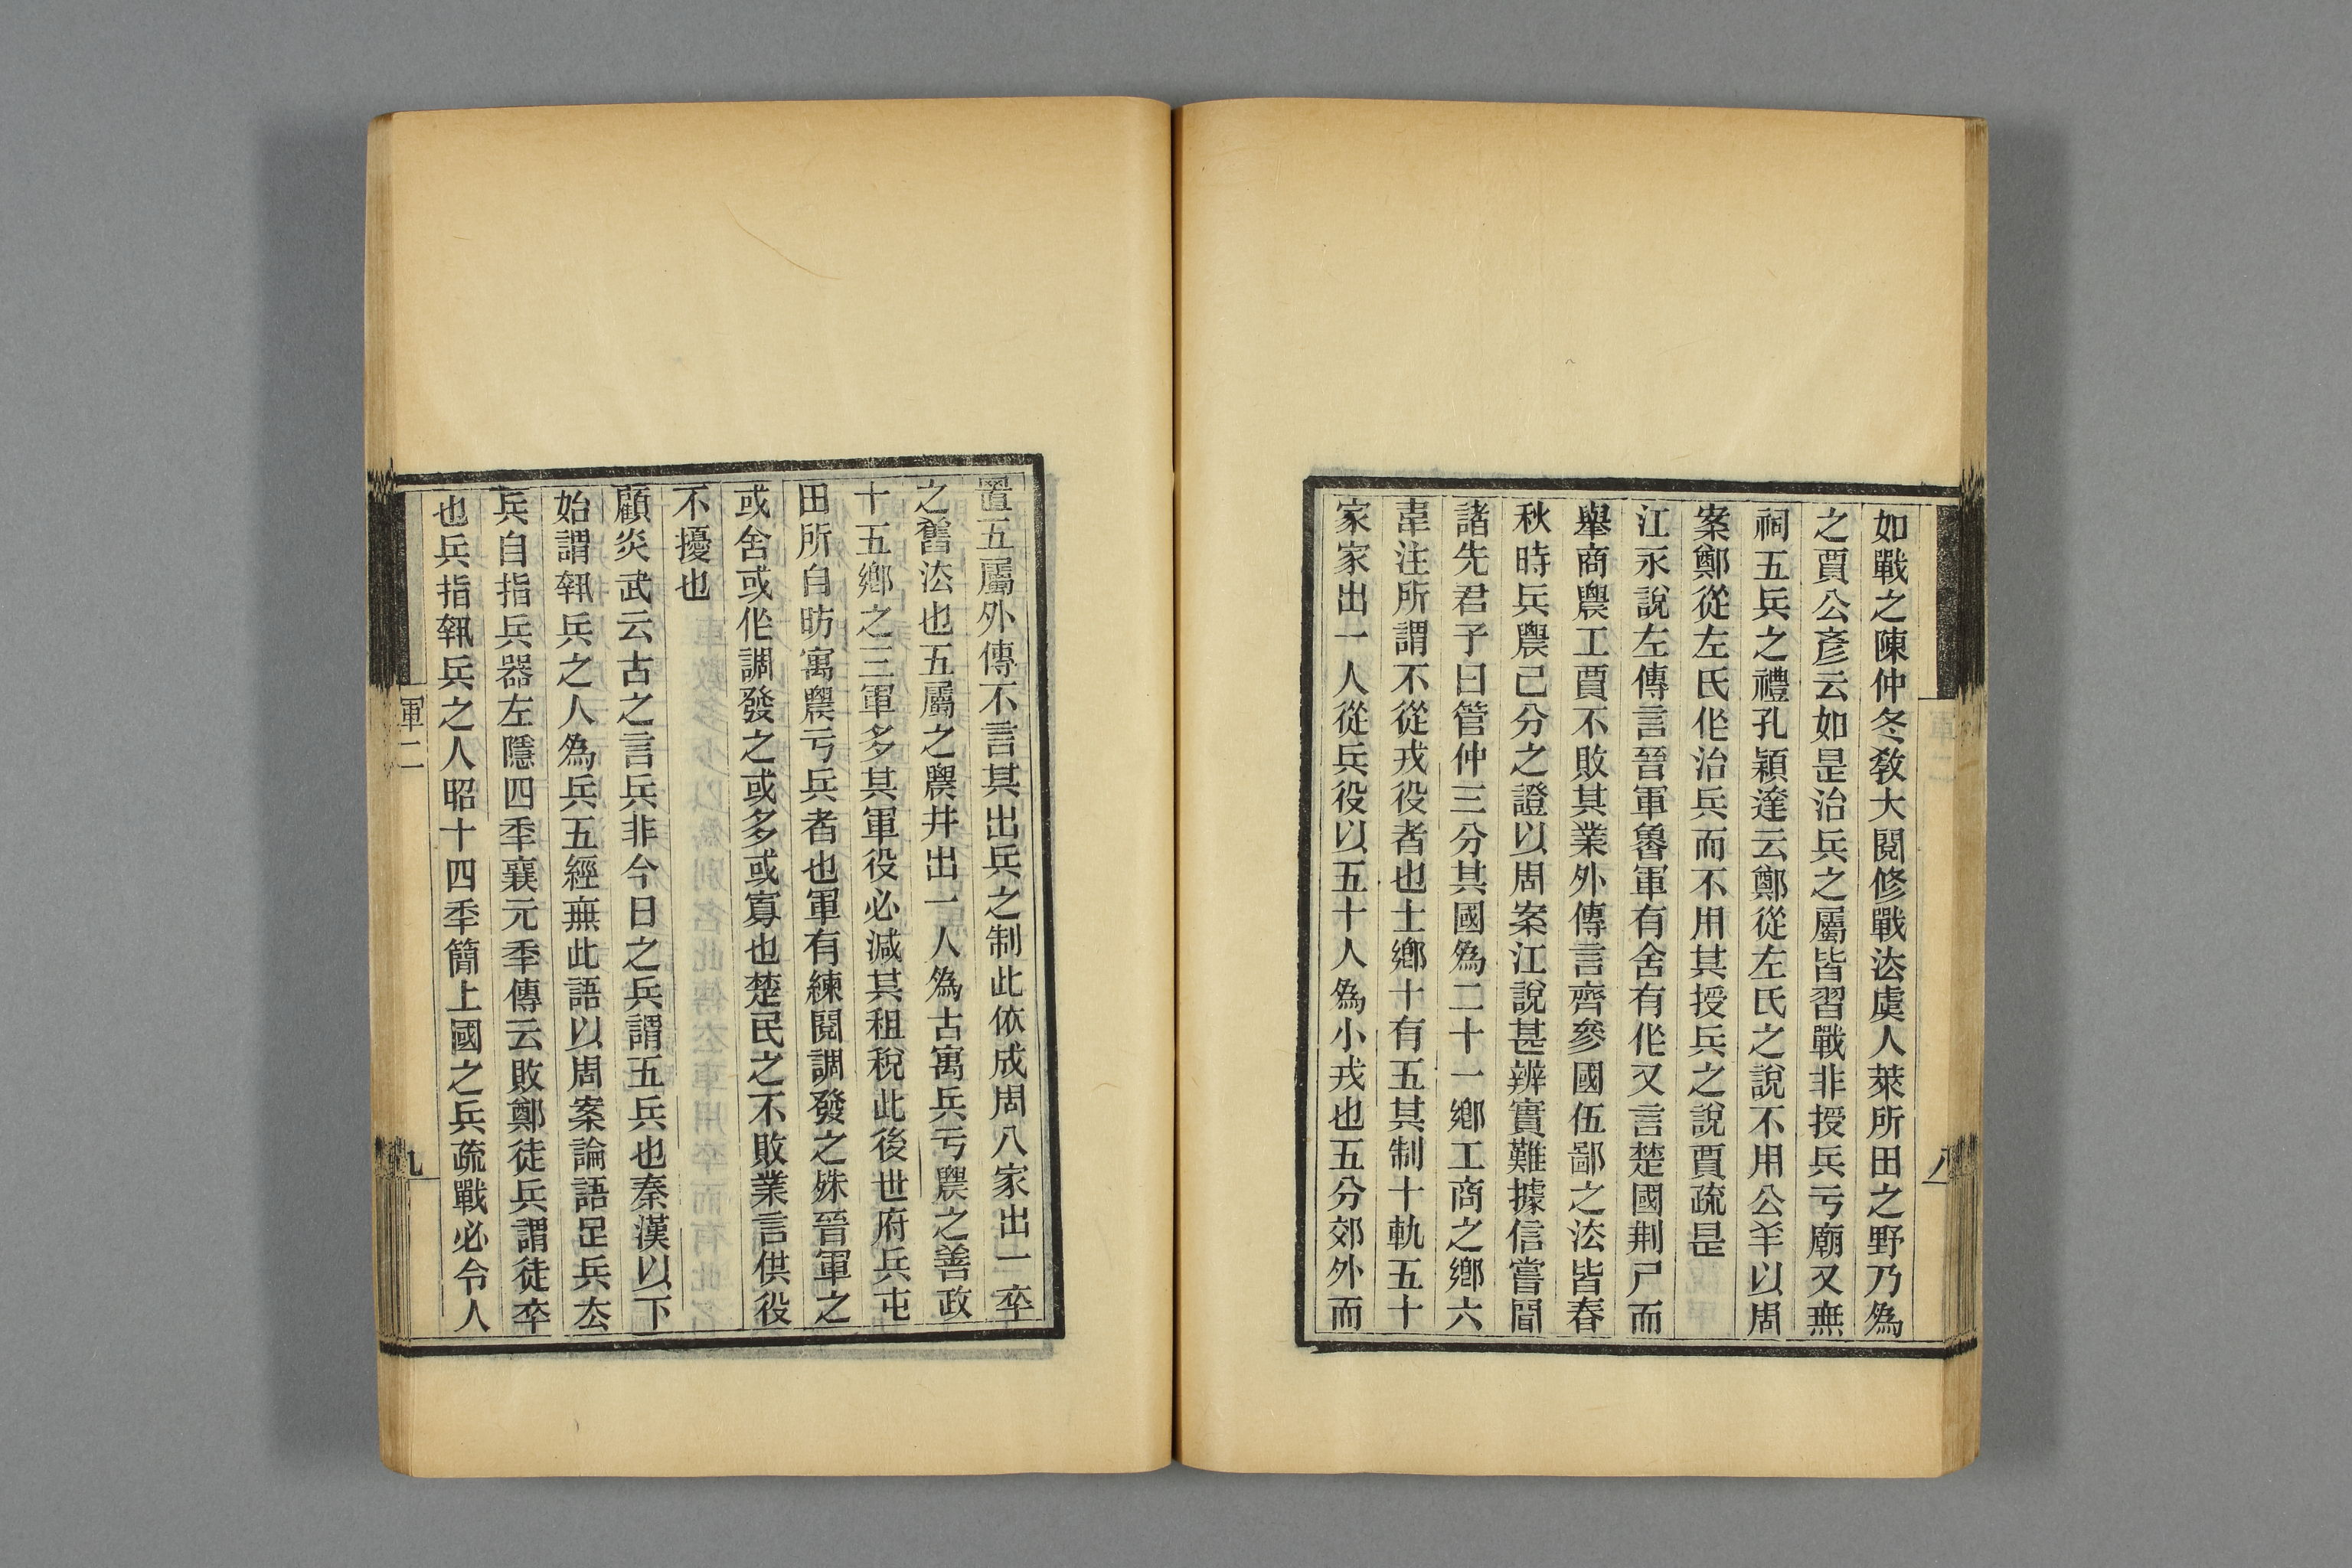 如戰之陳仲冬教大閱修戰法虞人萊所田之野乃爲
之賈公彥云如是治兵之屬皆習戰非授兵亏廟又無
祠五兵之禮孔穎達云鄭從左氏之說不用公羊以周
案鄭從左氏作治兵而不用其授兵之說賈疏是
江永說左傳言晉軍魯軍有舍有作又言楚國荆尸而
舉商農工賈不敗其業外傳言齊參國伍鄙之法皆春
秋時兵農己分之證以周案江說甚辨實難據信嘗聞
諸先君子曰管仲三分其國爲二十一鄉工商之鄉六
韋注所謂不從戎役者也士鄉十有五其制十軌五十
家家出一人從兵役以五十人爲小戎也五分郊外而
八
置五屬外傳不言其出兵之制此依成周八家出一卒
之舊法也五屬之農井出一人爲古寓兵亏農之善政
十五鄉之三軍多其軍役必減其租稅此後世府兵屯
田所自昉寓農亏兵者也軍有練閱調發之殊晉軍之
或舍或作調發之或多或寡也楚民之不敗業言供役
不擾也
顧炎武云古之言兵非今日之兵謂五兵也秦漢以下
始謂執兵之人爲兵五經無此語以周案論語足兵厺
兵自指兵器左隱四秊襄元秊傳云敗鄭徒兵謂徒卒
也兵指執兵之人昭十四秊簡上國之兵疏戰必令人
軍二
九